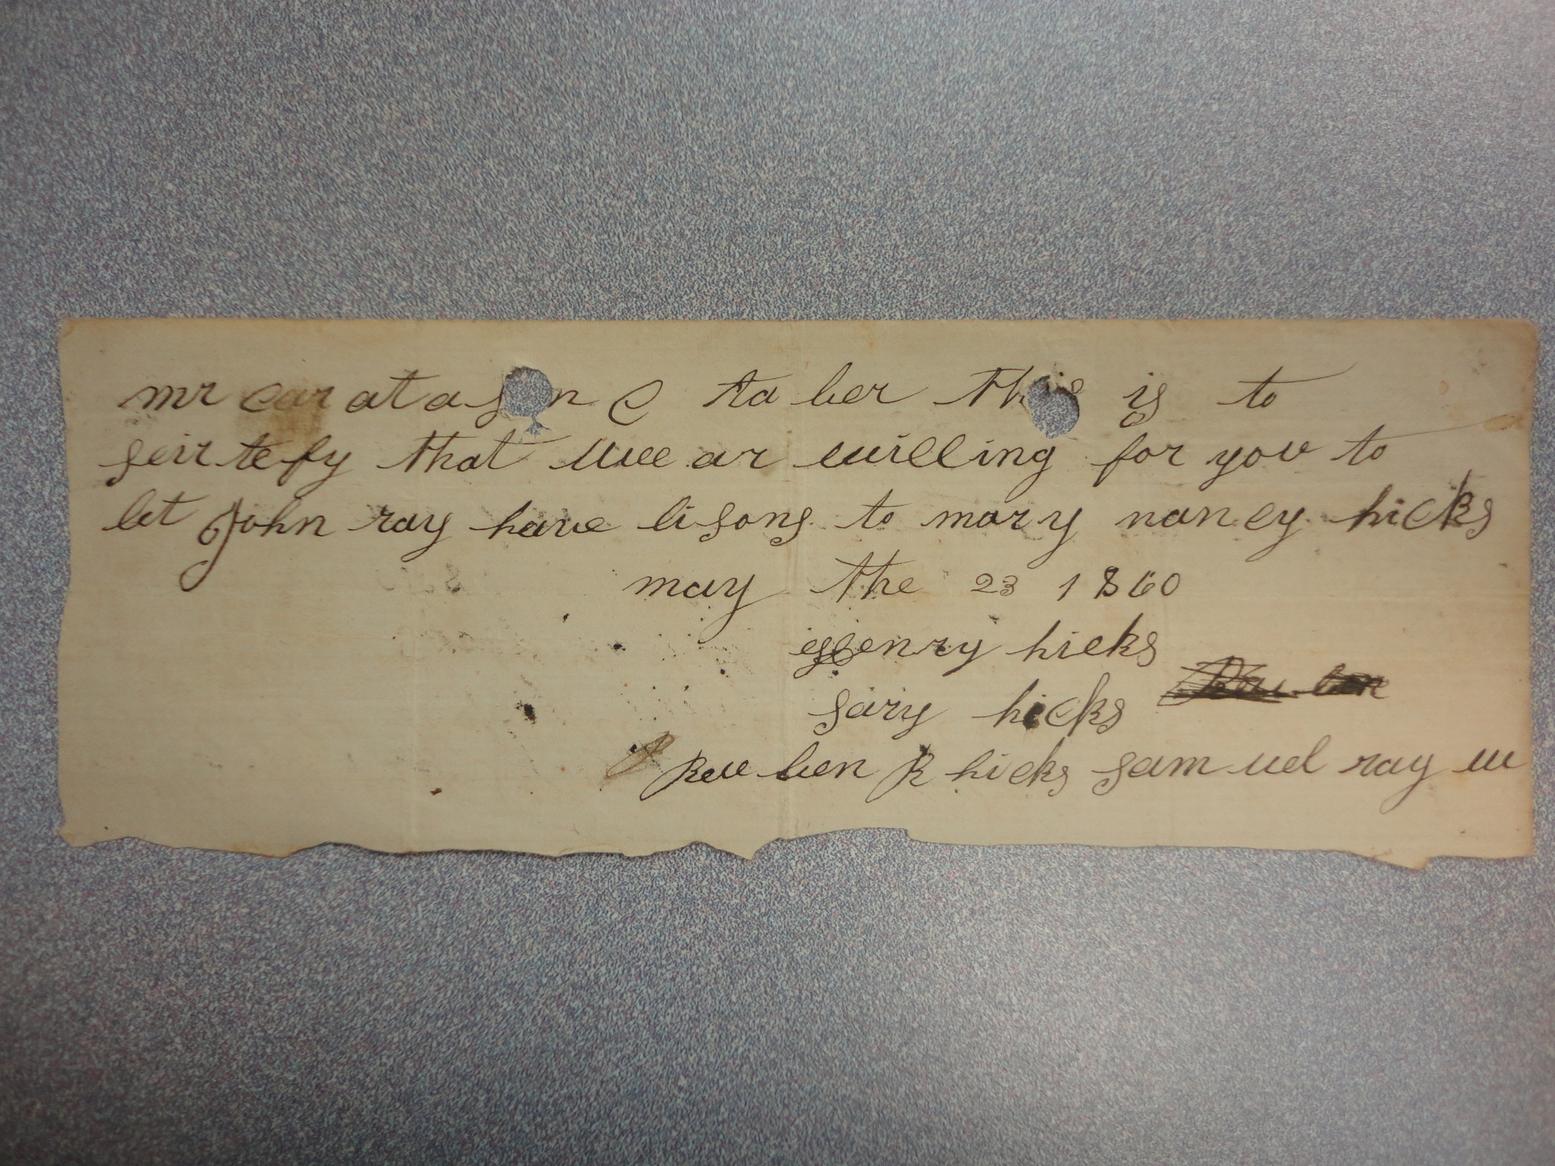 mr caratason C taber this is to
seirtefy that wee ar willing for you to
let John ray have lisons to mary nancy hicks
may the 23 1860
Henry hicks
sary hicks
Reuben R hicks samuel ray w